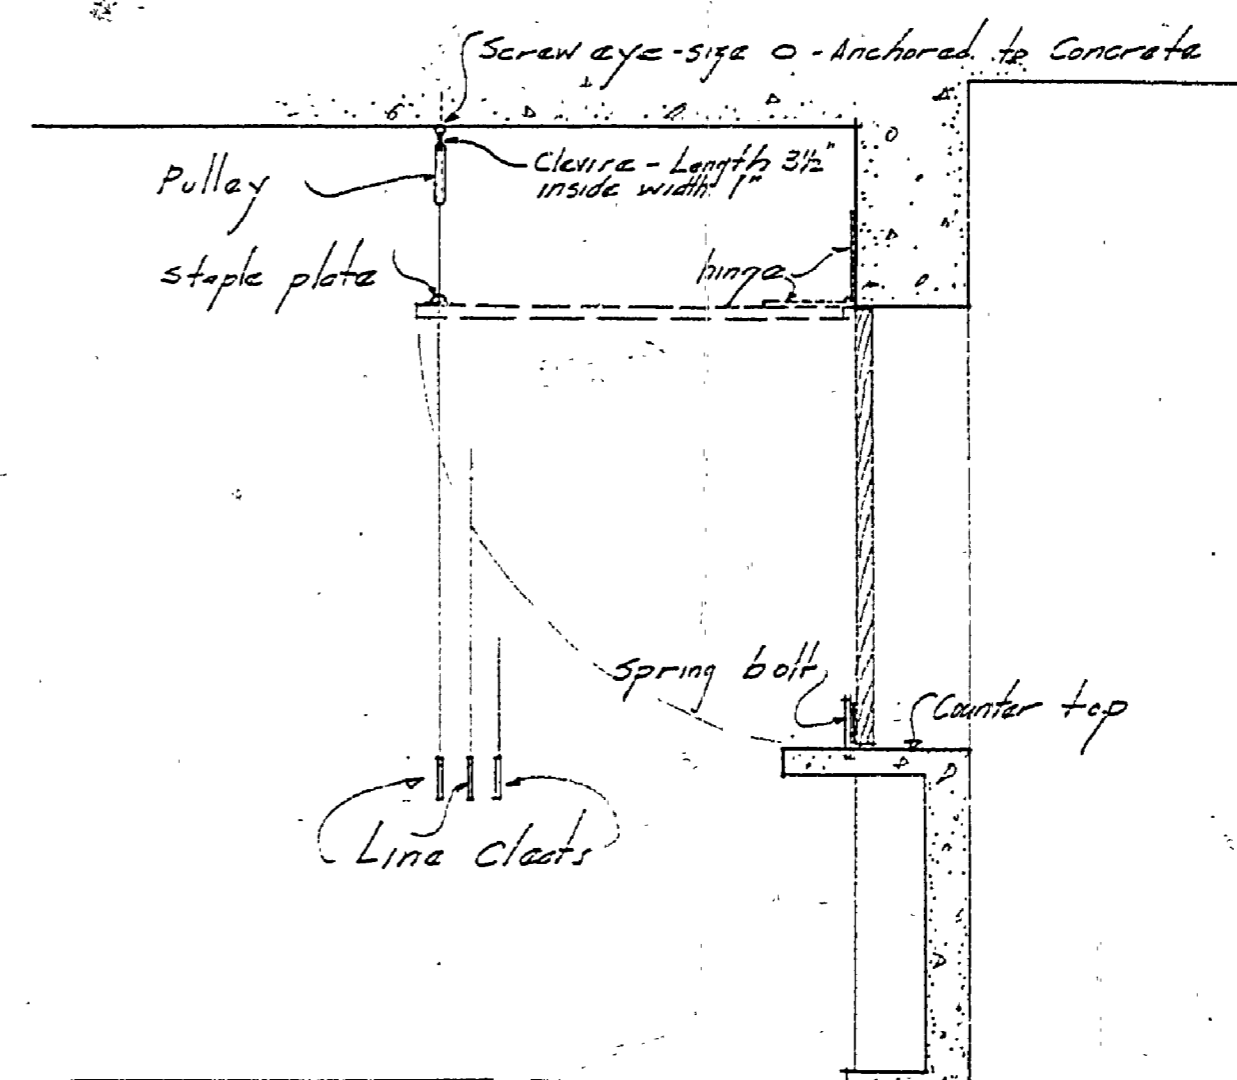 Screw eye - size 0 - Anchored to Concrete
Clevise - Length 3 1/2"
inside width 1"
Pulley
staple plate
hinge
spring bolt
Counter top
Line Cleats